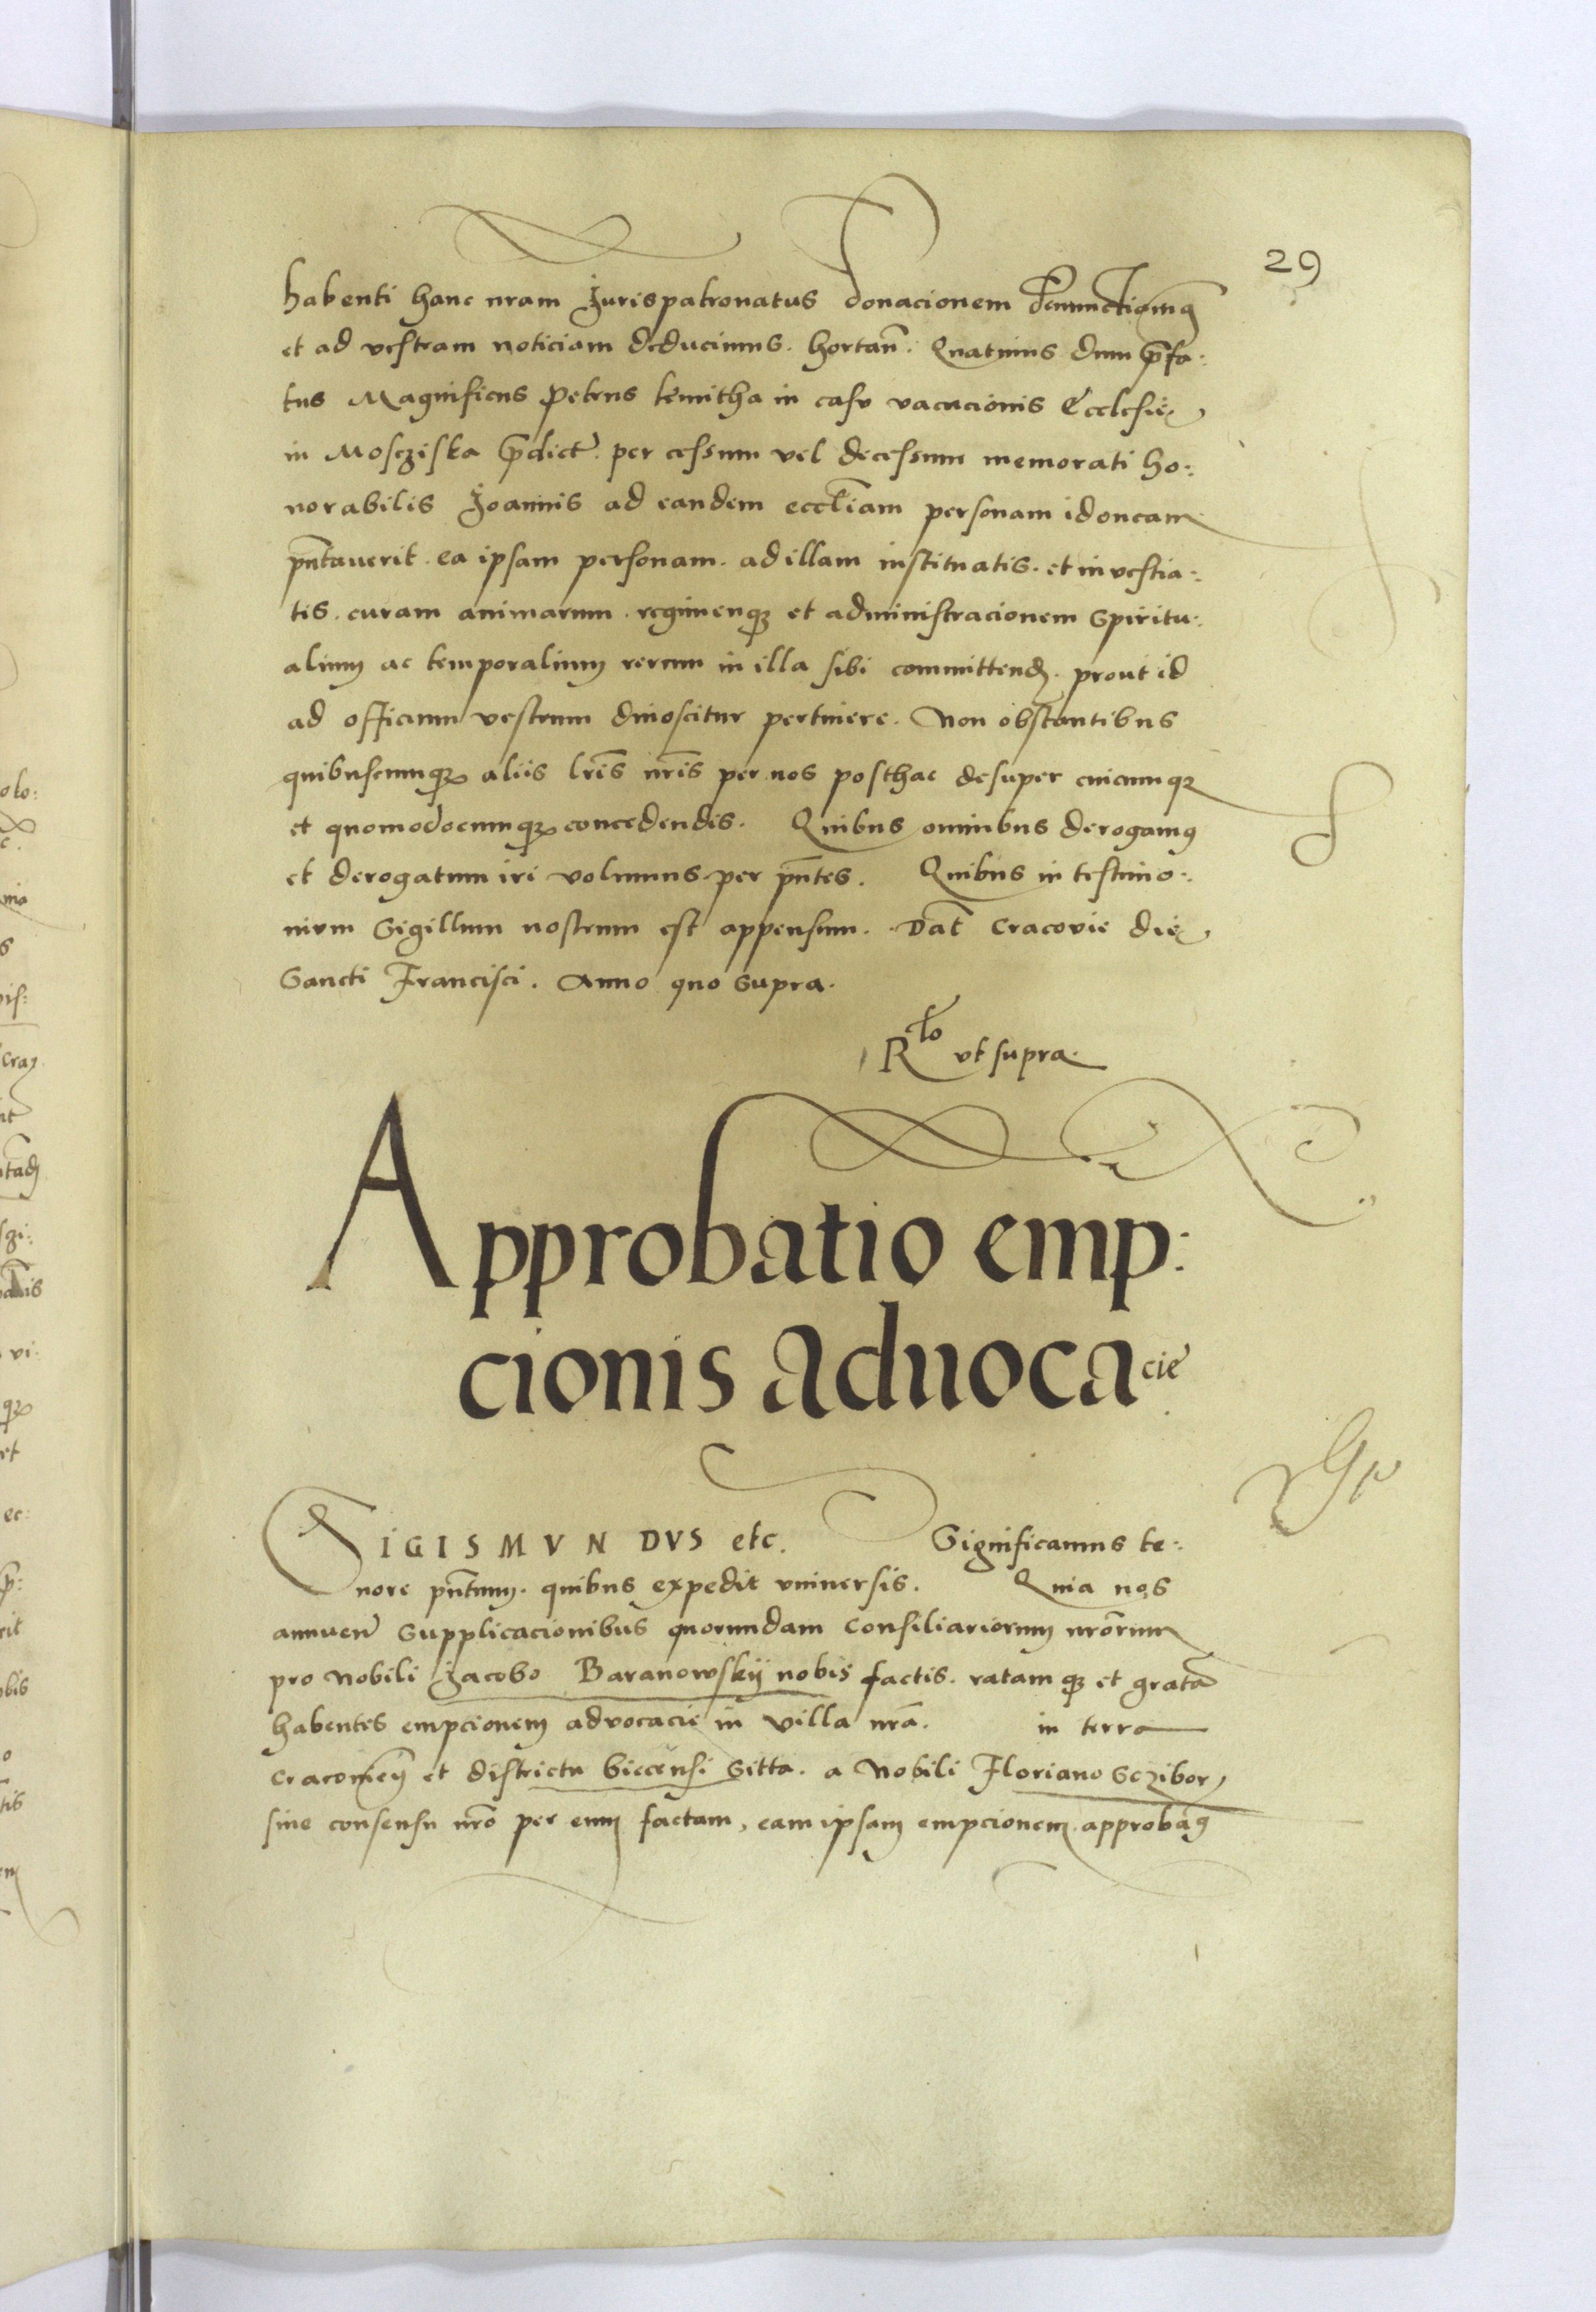 29
habenti hanc nram Jurispatronatus donacionem denunctiamq
et ad vestram noticiam deducimus. hortan̄. Quatinus dum p̄fa:
tus Magnificus Petrus kmitha in casu vacacionis Ecclesie
in Moscziska p̄dict. per cessum vel decessum memorati ho:
norabilis Joannis ad eandem eccl̄iam personam idoneam
pn̄taverit. ea ipsam personam. ad illam instituatis. et investia:
tis. curam animarum. regimenq; et administracionem Spiritu:
alium ac temporalium rerum in illa sibi committend. prout id
ad officium vestrum dinoscitur pertinere. Non obstantibus
quibuscunq; aliis lr̄is nr̄is per nos posthac desuper cuicunq;
et quomodocunq; concedendis. Quibus omnibus derogamus
et derogatum iri volumus per pn̄tes. Quibus in testimo:
nium Sigillum nostrum est appensum. Dat̄ Cracovie die
Sancti Francisci. Anno quo Supra.
R̄lo vt supra.
Approbatio emp:
cionis aduocacie
SIGISMVNDVS etc. Significamus te:
nore pn̄tium. quibus expedit vniversis. Quia nos
annuen̄ Supplicacionibus quorundam Consiliariorum nr̄orum
pro Nobili Jacobo Baranowskij nobis factis. ratam q; et gratā
habentes empcionem advocacie in villa nrā. in terra
Cracovien̄ et districtu biecensi Sitta. a Nobili Floriano Sczibor
sine consensu nr̄o per eum factam, eam ipsam empcionem approbāq